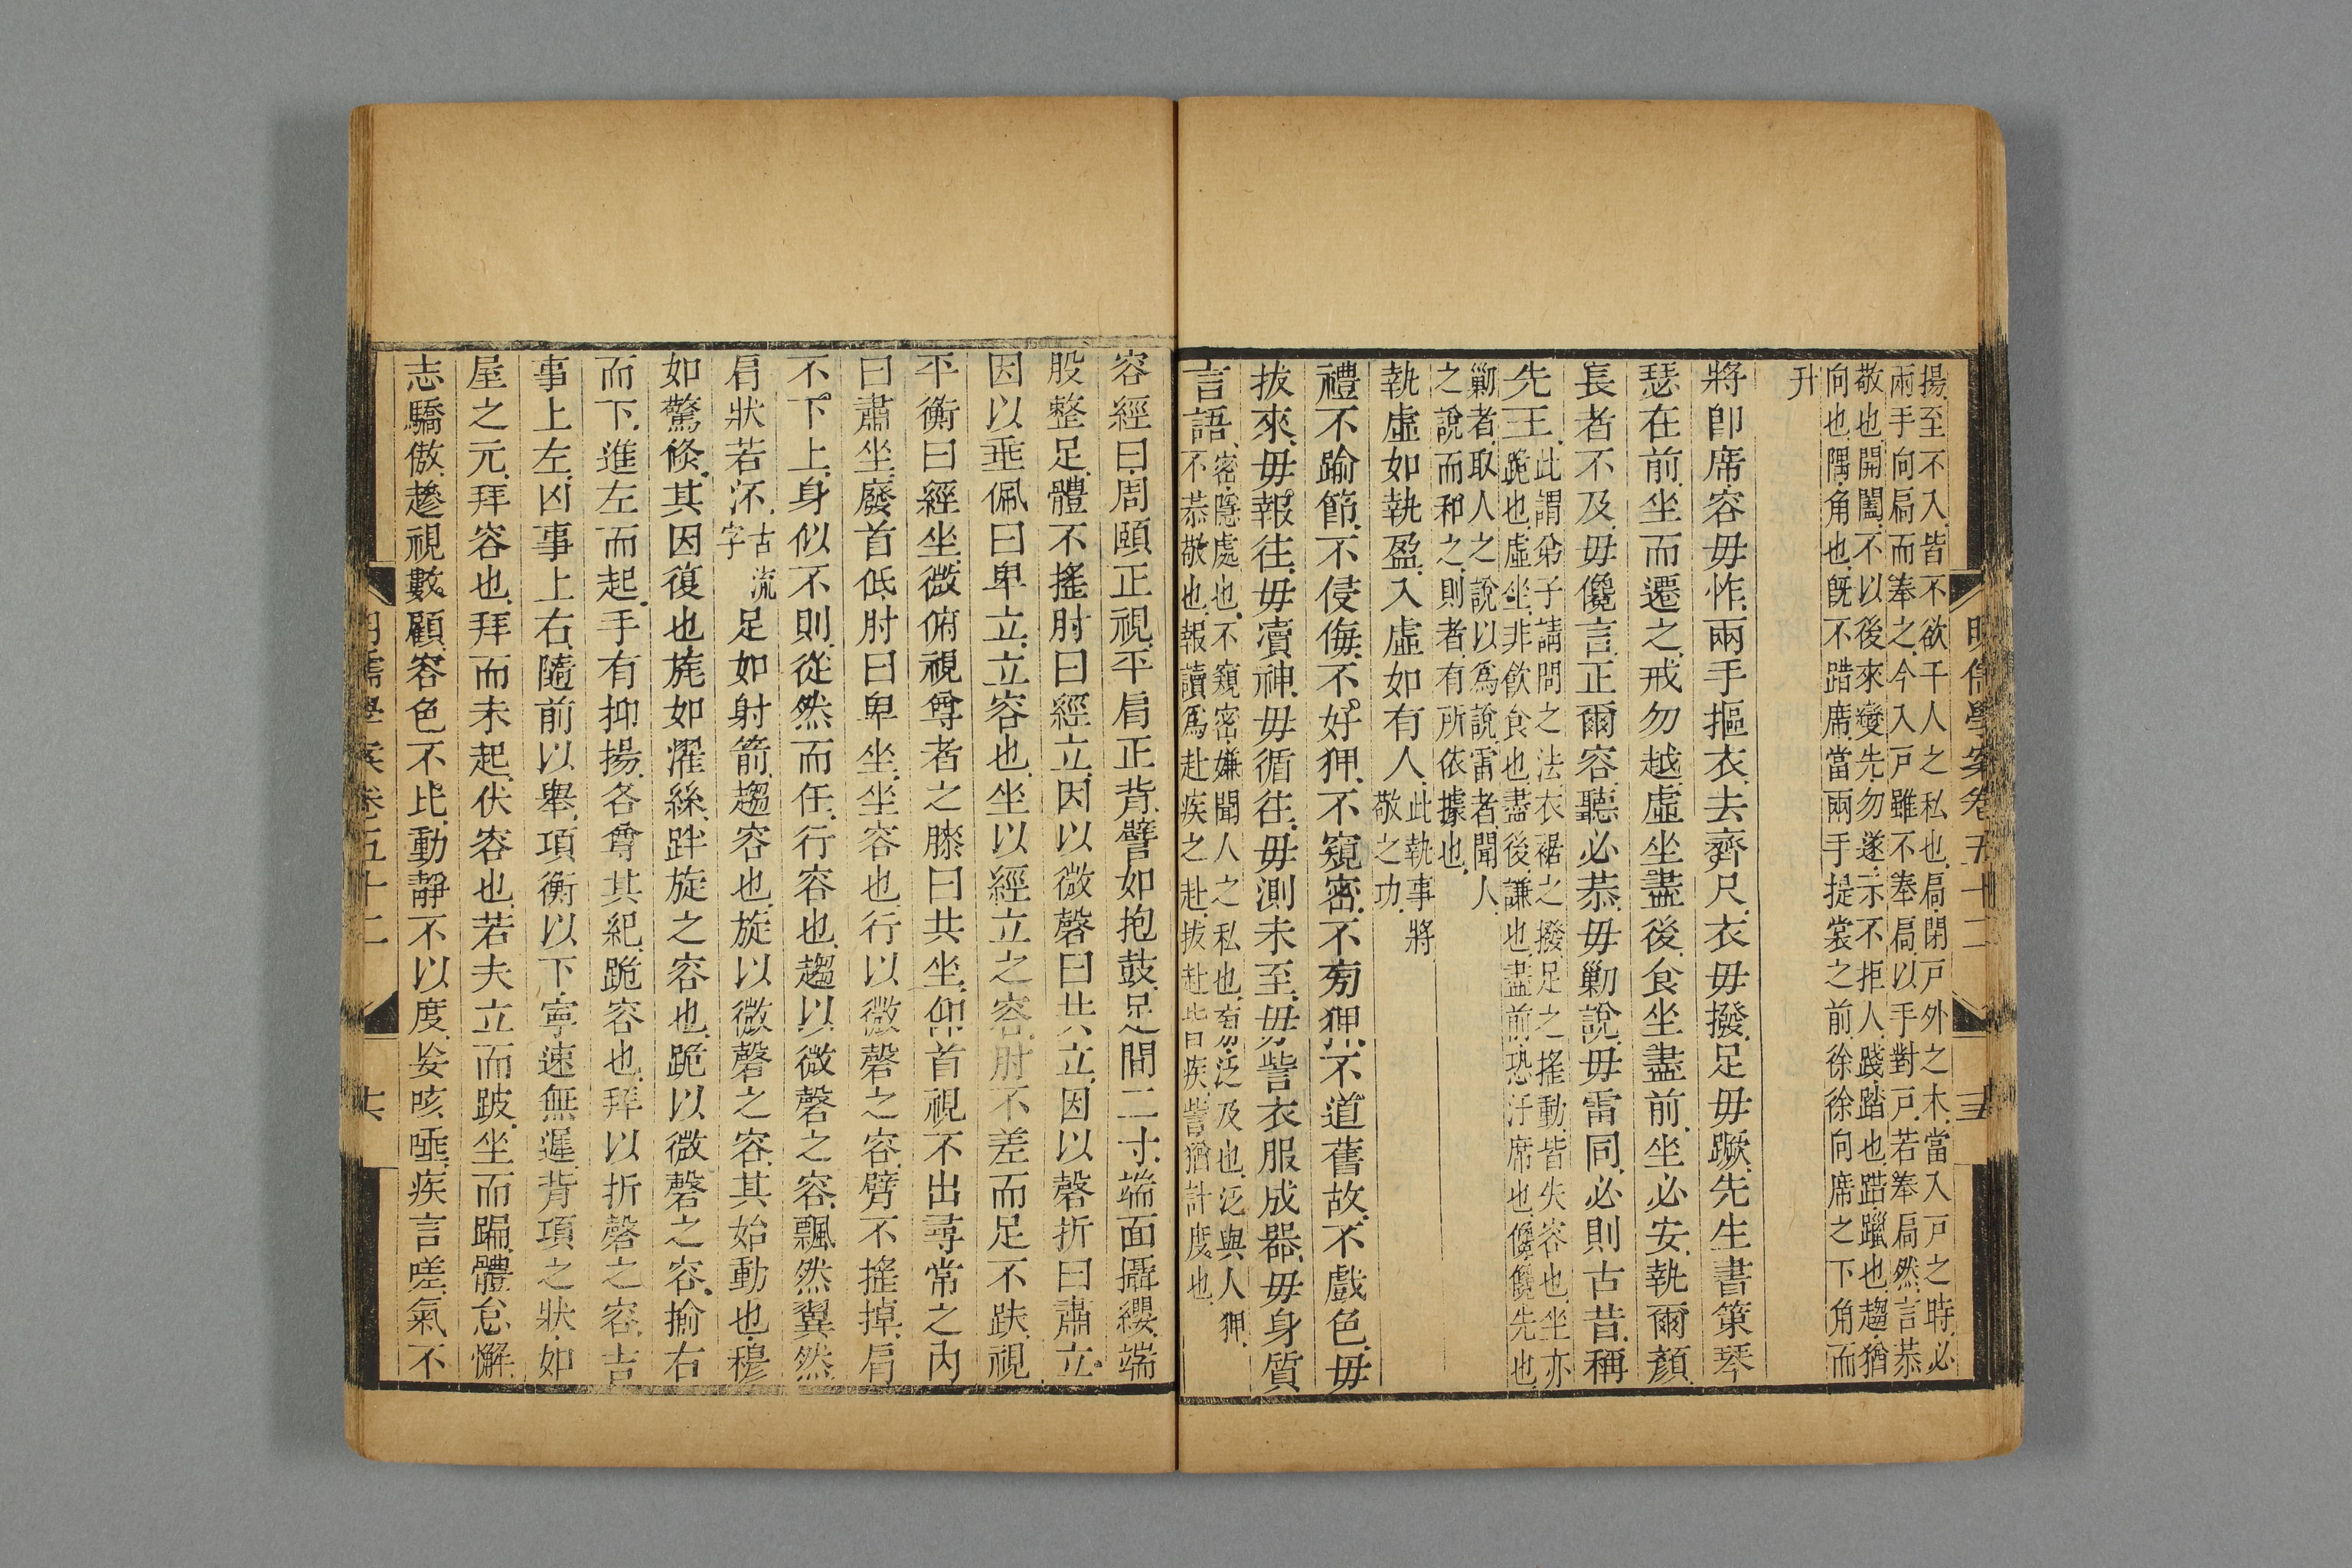 揚至不入皆不欲干人之私也扃閉戶外之木當入戶之時必
兩手向扃而奉之今入戶雖不奉扃以手對戶若奉扃然言恭
敬也開闔不以後來變先勿遂示不拒人踐踏也踖躐也趨猶
向也隅角也旣不踖席當兩手提裳之前徐徐向席之下角而
升
將卽席容毋怍兩手摳衣去齊尺衣毋撥足毋蹶先生書策琴
瑟在前坐而遷之戒勿越虛坐盡後食坐盡前坐必安執爾顏
長者不及毋儳言正爾容聽必恭毋勦說毋雷同必則古昔稱
先王此謂弟子請問之法衣裾之撥足之搖動皆失容也坐亦
跪也虛坐非飮食也盡後謙也盡前恐汙席也儳儳先也
勦者取人之說以爲說雷者聞人
之說而和之則者有所依據也
執虛如執盈入虛如有人此執事將
敬之功
禮不踰節不侵侮不好狎不窺密不旁狎不道舊故不戲色毋
拔來毋報往毋瀆神毋循往毋測未至毋訾衣服成器毋身質
言語密隱處也不窺密嫌聞人之私也旁泛及也泛與人狎
不恭敬也報讀爲赴疾之赴拔赴皆疾訾猶計度也
明儒學案卷五十二
容經曰周頤正視平肩正背臂如抱鼓足間二寸端面攝纓端
股整足體不搖肘曰經立因以微磬曰共立因以磬折曰肅立
因以垂佩曰卑立立容也坐以經立之容肘不差而足不跌視
平衡曰經坐微俯視尊者之膝曰共坐仰首視不出尋常之內
曰肅坐廢首低肘曰卑坐坐容也行以微磬之容臂不搖掉肩
不下上身似不則從然而任行容也趨以微磬之容飄然翼然
肩狀若沶古流
字足如射箭趨容也旋以微磬之容其始動也穆
如驚倏其固復也旄如濯絲跘旋之容也跪以微磬之容揄右
而下進左而起手有抑揚各尊其紀跪容也拜以折磬之容吉
事上左凶事上右隨前以舉項衡以下寧速無遲背項之狀如
屋之元拜容也拜而未起伏容也若夫立而跛坐而蹁體怠懈
志驕傲趮視數顧容色不比動靜不以度妄咳唾疾言嗟氣不
明儒學案卷五十二